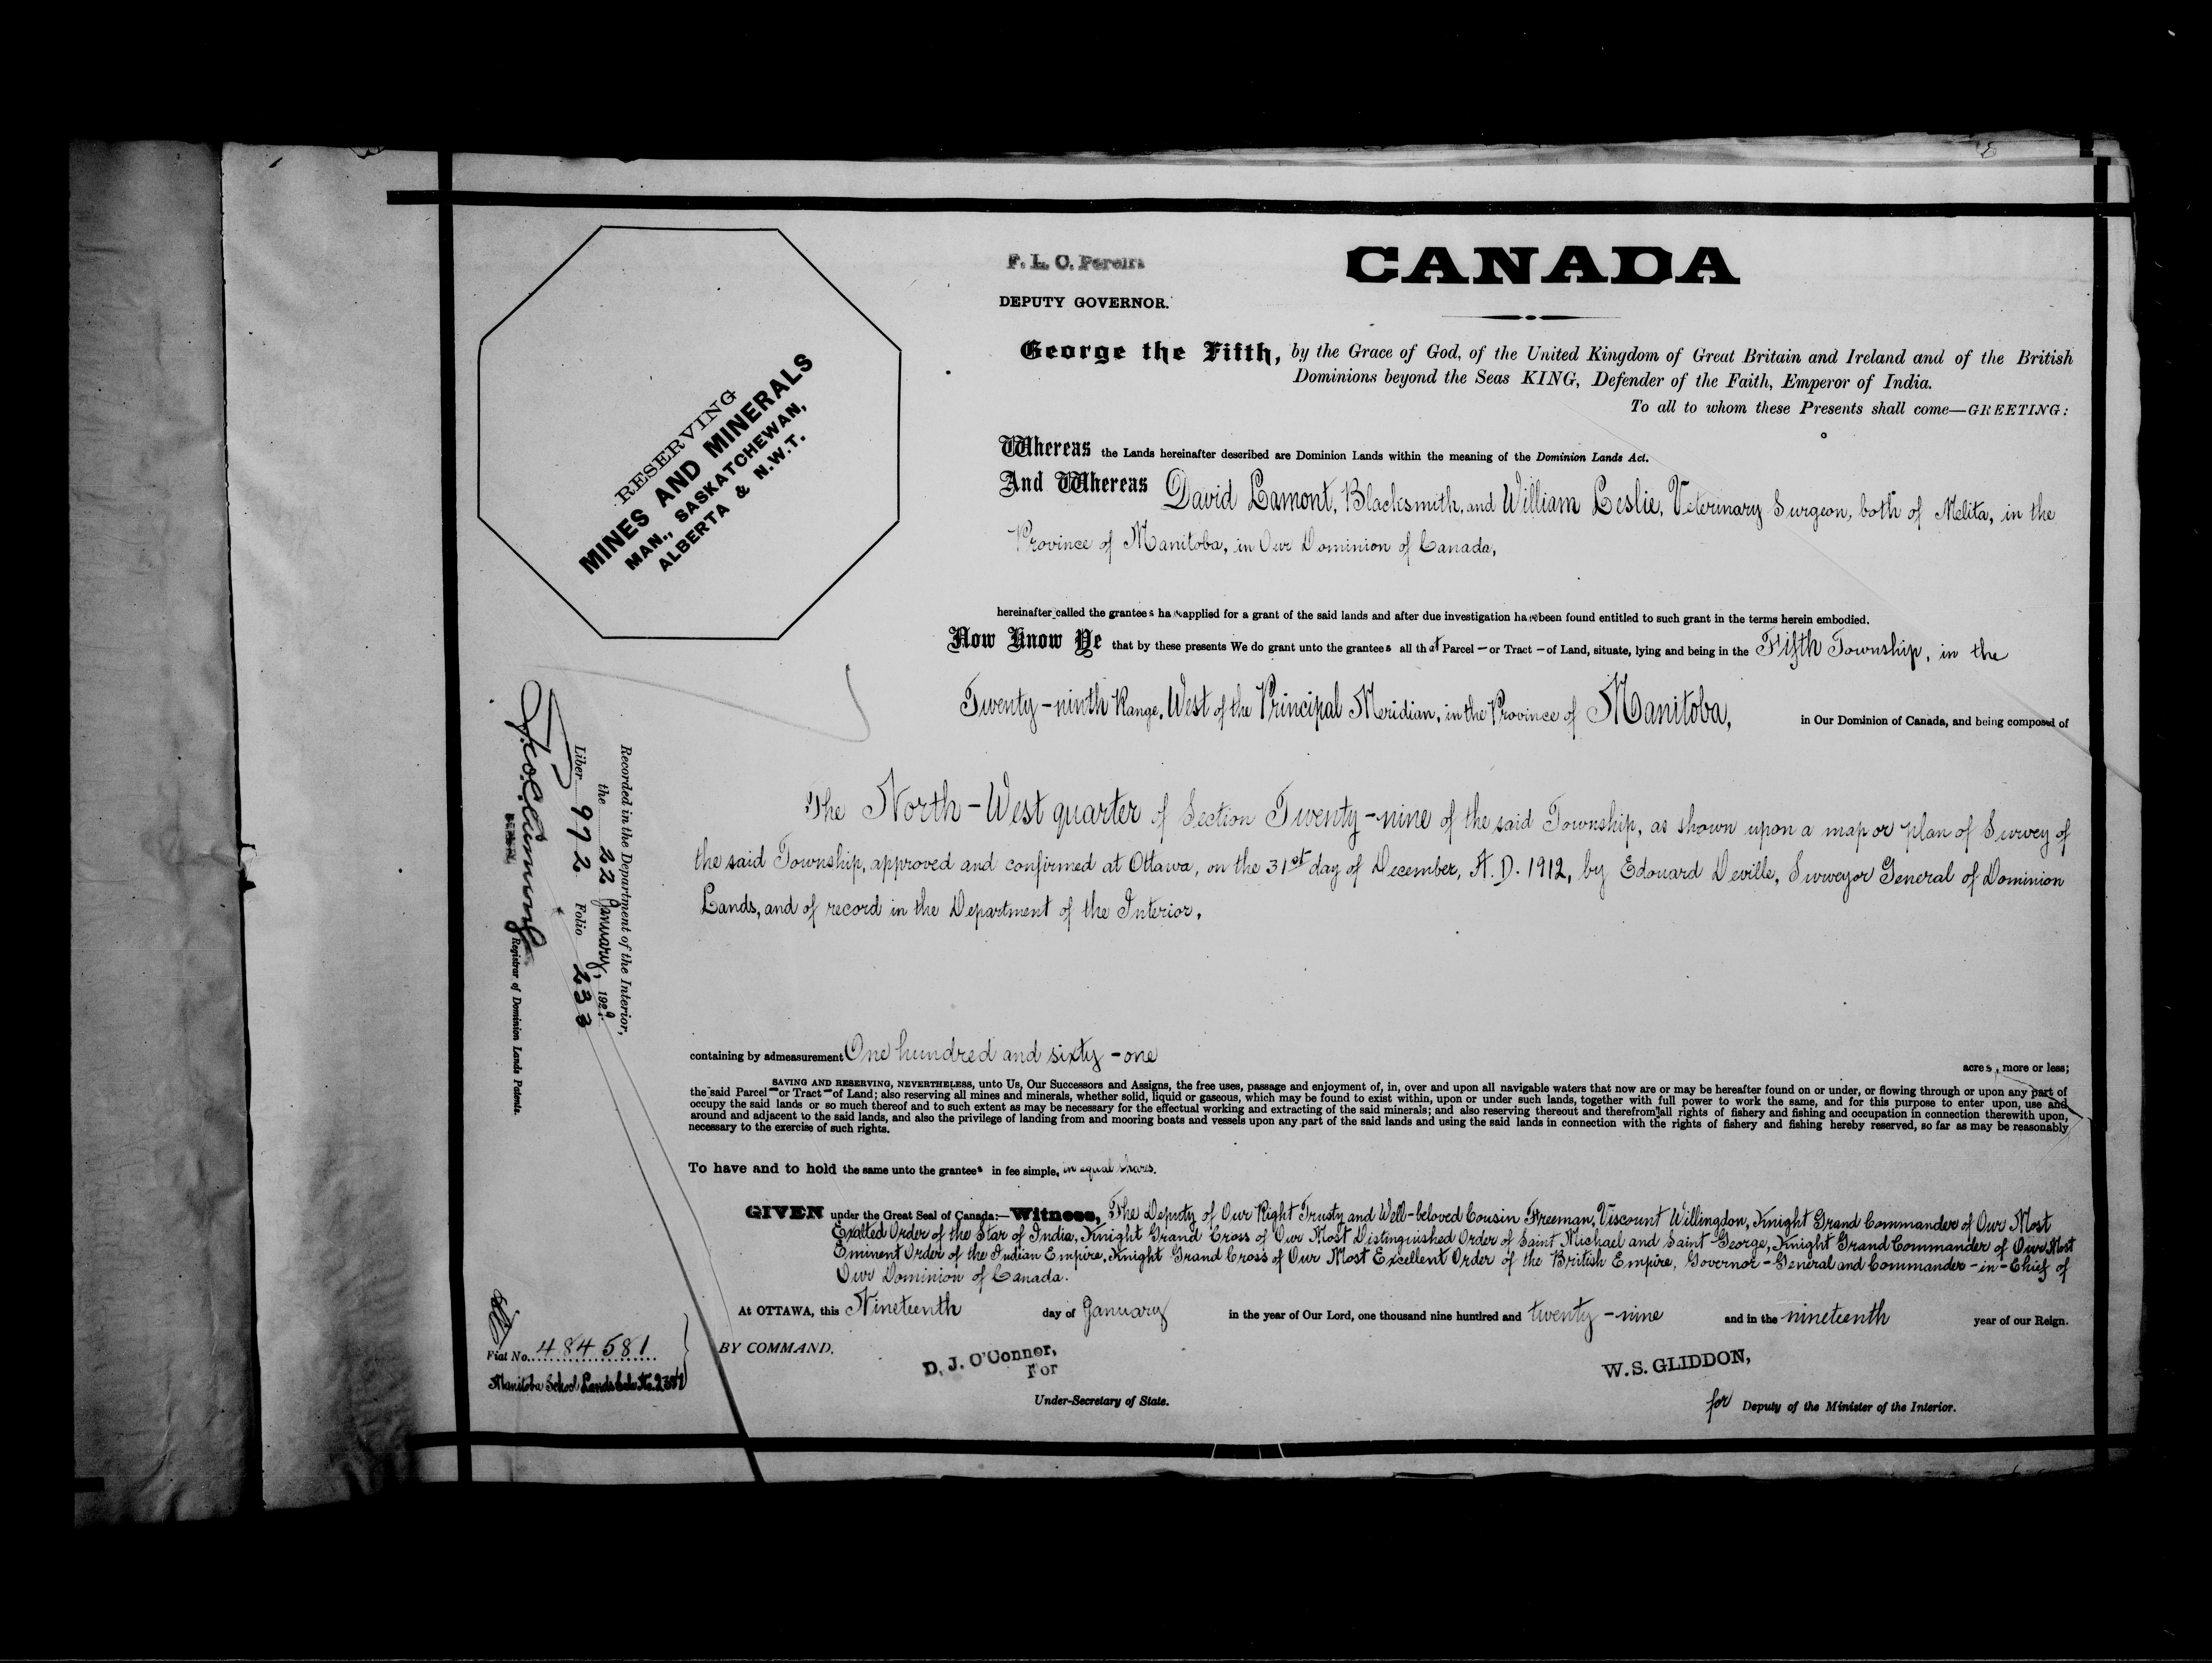 F. L. C. Pereira
DEPUTY GOVERNOR.
CANADA
George the Fifth, by the Grace of God, of the United Kingdom of Great Britain and Ireland and of the British
Dominions beyond the Seas KING, Defender of the Faith, Emperor of India.
To all to whom these Presents shall come—GREETING:
RESERVING
MINES AND MINERALS
MAN., SASKATCHEWAN,
ALBERTA & N.W.T.
Whereas the Lands hereinafter described are Dominion Lands within the meaning of the Dominion Lands Act.
And Whereas David Lamont, Blacksmith, and William Leslie, Veterinary Surgeon, both of Melita, in the
Province of Manitoba, in Our Dominion of Canada,
hereinafter called the grantees have applied for a grant of the said lands and after due investigation have been found entitled to such grant in the terms herein embodied.
Now Know Ye that by these presents We do grant unto the grantees all that Parcel — or Tract — of Land, situate, lying and being in the Fifth Township, in the
Twenty-ninth Range, West of the Principal Meridian, in the Province of Manitoba, in Our Dominion of Canada, and being composed of
The North-West quarter of Section Twenty-nine of the said Township, as shown upon a map or plan of Survey of
the said Township, approved and confirmed at Ottawa, on the 31st day of December, A.D. 1912, by Edouard Deville, Surveyor General of Dominion
Lands, and of record in the Department of the Interior,
containing by admeasurement One hundred and sixty-one acres, more or less;
SAVING AND RESERVING, NEVERTHELESS, unto Us, Our Successors and Assigns, the free uses, passage and enjoyment of, in, over and upon all navigable waters that now are or may be hereafter found on or under, or flowing through or upon any part of
the said Parcel — or Tract — of Land; also reserving all mines and minerals, whether solid, liquid or gaseous, which may be found to exist within, upon or under such lands, together with full power to work the same, and for this purpose to enter upon, use and
occupy the said lands or so much thereof and to such extent as may be necessary for the effectual working and extracting of the said minerals; and also reserving thereout and therefrom all rights of fishery and fishing and occupation in connection therewith upon,
around and adjacent to the said lands, and also the privilege of landing from and mooring boats and vessels upon any part of the said lands and using the said lands in connection with the rights of fishery and fishing hereby reserved, so far as may be reasonably
necessary to the exercise of such rights.
To have and to hold the same unto the grantees in fee simple, in equal shares.
GIVEN under the Great Seal of Canada:—Witness, The Deputy of Our Right Trusty and Well-beloved Cousin Freeman, Viscount Willingdon, Knight Grand Commander of Our Most
Exalted Order of the Star of India, Knight Grand Cross of Our Most Distinguished Order of Saint Michael and Saint George, Knight Grand Commander of Our Most
Eminent Order of the Indian Empire, Knight Grand Cross of Our Most Excellent Order of the British Empire, Governor-General and Commander-in-Chief of
Our Dominion of Canada.
At OTTAWA, this Nineteenth day of January in the year of Our Lord, one thousand nine hundred and twenty-nine and in the nineteenth year of our Reign.
BY COMMAND.
D. J. O'Connor,
For
Under-Secretary of State.
W. S. GLIDDON,
for Deputy of the Minister of the Interior.
Recorded in the Department of the Interior,
the 22 January, 1929
Liber 972 Folio 233
Registrar of Dominion Lands Patents.
Fiat No. 484581
Manitoba School Lands Sale No.